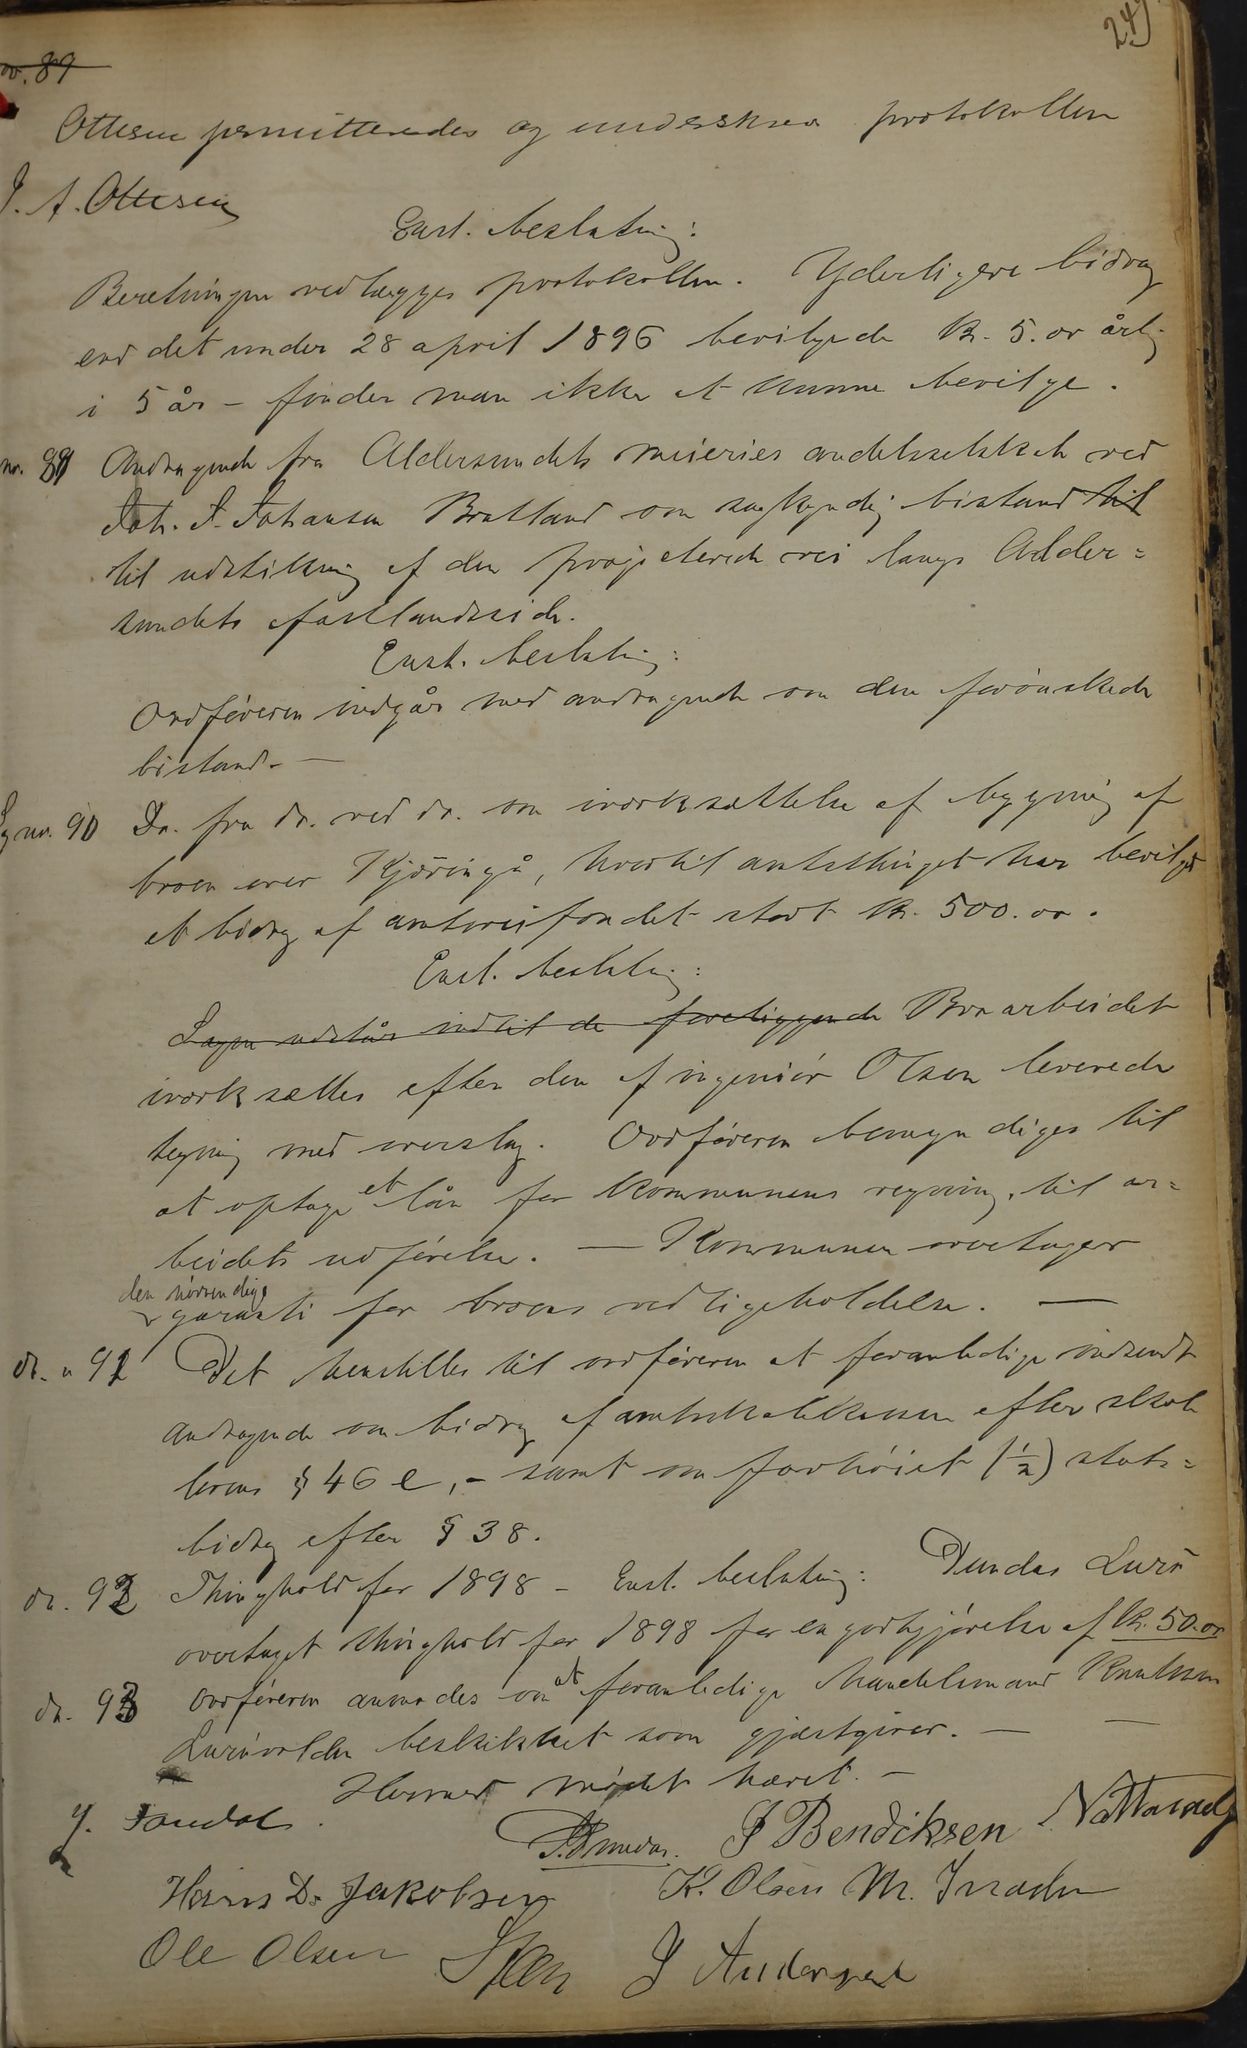 249
nr. 89
Ottesen permitteredes og underskrev protokollen
J. A. Ottesen
Enst. beslutning:
Beretningen vedlægges protokollen. Yderligere bidrag
end det under 28 april 1896 bevilgede kr. 5.00 årlig
i 5 år – finder man ikke at kunne bevilge.
nr. 89 Andragende fra Aldersundets meieries andelsselskab ved
Joh. J. Johansen Bratland om sagkyndig bistand til
til udstikning af den projecterede vei langs Alder=
sundets fastlandsside.
Enst. beslutning:
Ordføreren indgår med andragende om den forønskede
bistand. —
Sag nr. 90 Do. fra do. ved do. om iværksættelse af bygning af
broen over Kjøringå, hvortil amtsthinget har bevilget
et bidrag af amtsveifondet stort kr. 500.00.
Enst. beslutning:
Sagen udstår indtil de foreliggende Broarbeidet
iværksættes efter den af ingeniør Olsen leverede
tegning med overslag. Ordføreren bemyndiges til
at optage et lån for kommunens regning, til ar=
beidets udførelse. — Kommunen overtager
den nødvendige
garanti for broens vedligeholdelse. —
do. " 91 Det henstilles til ordføreren at foranledige indsendt
andragende om bidrag af amtsskolekassen efter skole
lovens § 46 e, – samt om forhøiet (1/2) stats=
bidrag efter § 38.
do. 92 Thinghold for 1898 – Enst. beslutning: Dundas Lurø
overtaget thinghold for 1898 for en godtgjørelse af kr. 50.00
do. 93 Ordføreren anmodes om at foranledige handelsmand Knutsen
Lurøvolden beskikket som gjæstgiver. — —
Hermed mødet hævet. –
J. Bendiksen
Hans D. Jakobsen K. Olsen M.
Ole Olsen J Andersen